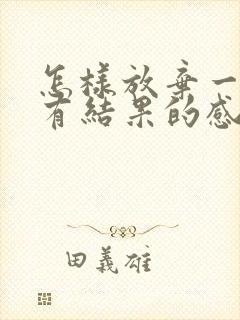 怎樣放棄一
有結果的感
田義雄